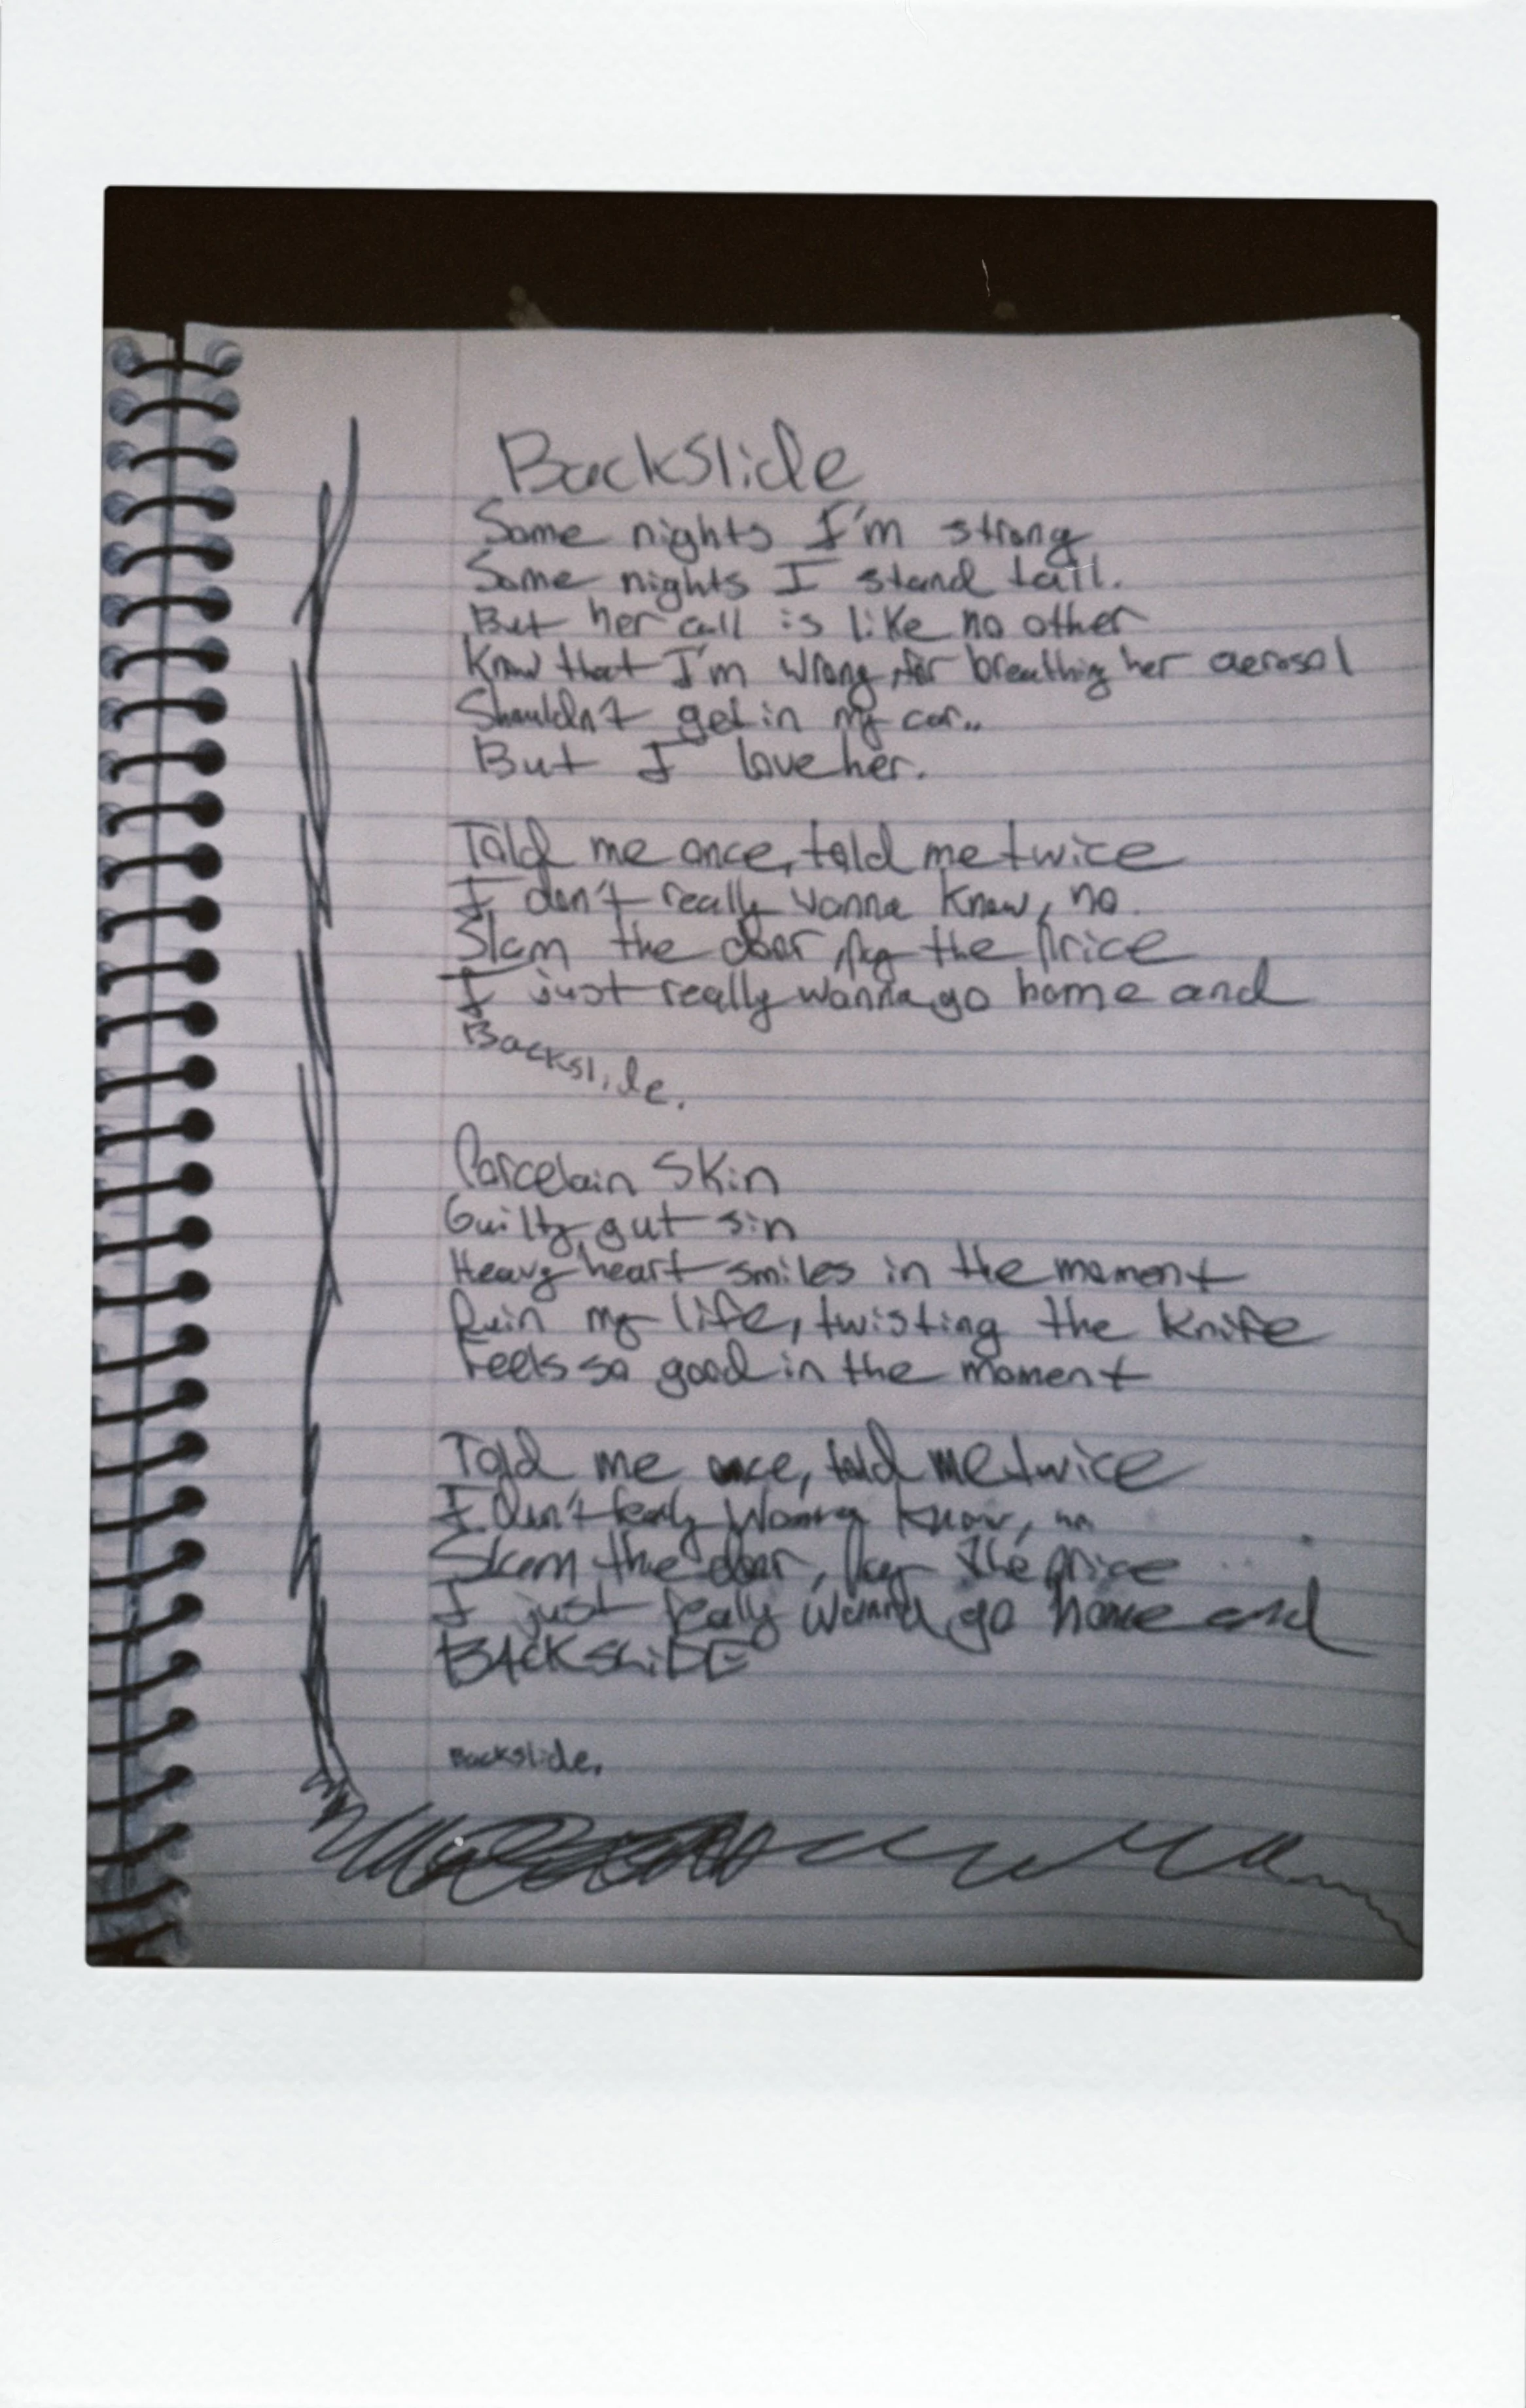 Backslide
Some nights I'm strong
Some nights I stand tall.
But her call is like no other
Know that I'm wrong, for breathing her aerosol
Shouldn't get in my car..
But I love her.
Told me once, told me twice
I don't really wanna know, no
Slam the door, pay the price
I just really wanna go home and
Backslide.
Porcelain Skin
Guilty gut sin
Heavy heart smiles in the moment
Ruin my life, twisting the knife
Feels so good in the moment
Told me once, told me twice
I don't really wanna know, no
Slam the door, pay the price
I just really wanna go home and
BACKSLiDE
Backslide.